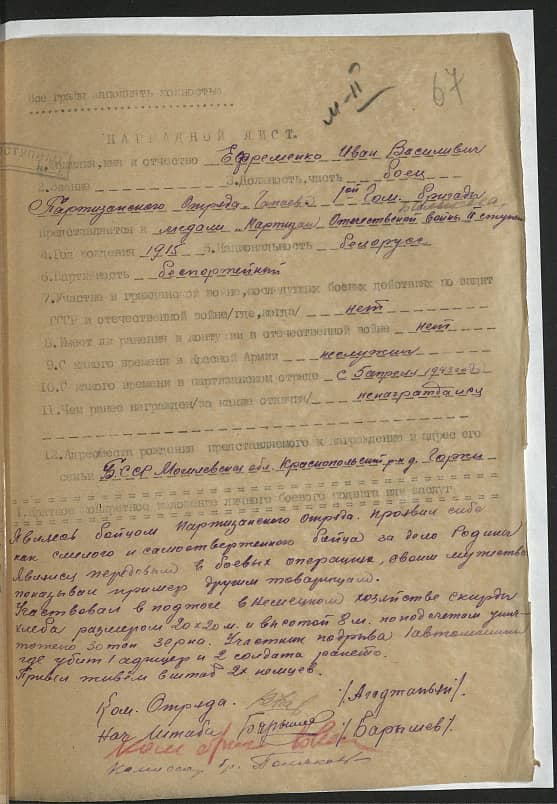 М-II
67
Все графы заполнять полностью
НАГРАДНОЙ ЛИСТ.
1. Фамилия, имя и отчество Ефременко Иван Васильевич
2. Звание 3. Должность, часть боец
Партизанского Отряда 1ой Гом. бригады
Представляется к медали "Партизан Отечественной войны II степ
4. Год рождения 1915 5. Национальность белорусс
6. Партийность беспортейный
7. Участие в гражданской войне, последующих боевых действиях по защит
СССР и отечественной войне/где, когда/ нет
8. Имеет ли ранения и контузии в отечественной войне нет
9. С какого времени в Красной Армии неслужил
10. С какого времени в партизанском отряде с 5 апреля 1942
11. Чем ранее награжден/за какие отличия/ ненаграждался
12. Адрес места рождения представляемого к награждению и адрес его
семьи БССР Могилевская обл. Краснопольский р-н д. Горки
1. Краткое конкретное изложение личного боевого подвига или заслуг
Являясь бойцом Партизанского Отряда. Проявил себя
как смелого и самоотверженного бойца за дело Родины
Являлся передовым в боевых операциях, своим мужеством
показывал пример другим товарищам.
Участвовал в поджоге в немецком хозяйстве скирды
хлеба размером 20х20 м. и высотой 8 м. по подсчетам унич-
тожено 30 тон зерна. Участник подрыва 1 автомашины
где убит 1 афицер и 2 солдата рането.
Привел живьём в штаб 2х немцев.
Ком. Отряда. /Агаджаньян/.
Нач Штаба Барышев /Барышев/.
Ком
Комиссар бр.